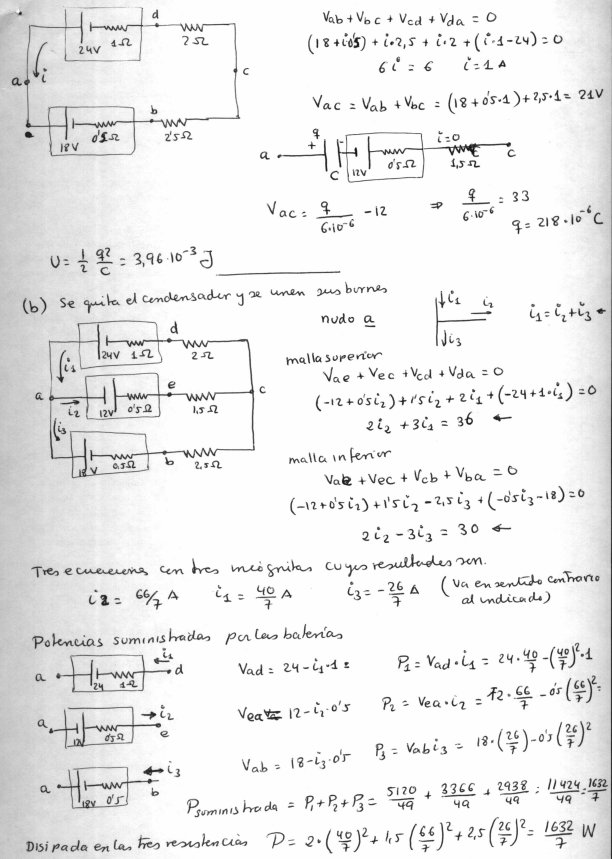 d
24V 1Ω 2Ω
a i c
b
18V 0'5Ω 2'5Ω
Vab + Vbc + Vcd + Vda = 0
(18+i0'5) + i·2,5 + i·2 + (i·1-24) = 0
6i = 6 i = 1 A
Vac = Vab + Vbc = (18+0'5·1)+2,5·1 = 21V
q i=0
a + - c
C 12V 0'5Ω 1,5Ω
Vac = q/6·10⁻⁶ - 12 ⇒ q/6·10⁻⁶ = 33
q = 218·10⁻⁶ C
U = 1/2 q²/C = 3,96·10⁻³ J
(b) Se quita el condensador y se unen sus bornes
nudo a i1 i2 i3 i1 = i2 + i3 ←
d
24V 1Ω 2Ω
i1
a i2 e c
12V 0'5Ω 1,5Ω
i3
18V 0,5Ω b 2,5Ω
malla superior
Vae + Vec + Vcd + Vda = 0
(-12+0'5i2)+1'5i2 + 2i1 + (-24+1·i1) = 0
2i2 + 3i1 = 36 ←
malla inferior
Vae + Vec + Vcb + Vba = 0
(-12+0'5i2)+1'5i2 - 2,5i3 + (-0'5i3-18) = 0
2i2 - 3i3 = 30 ←
Tres ecuaciones con tres incógnitas cuyos resultados son.
i2 = 66/7 A i1 = 40/7 A i3 = -26/7 A (Va en sentido contrario
al indicado)
Potencias suministradas por las baterías
a 24 1Ω i1 d Vad = 24 - i1·1 = P1 = Vad·i1 = 24·40/7 - (40/7)²·1
a 12 0'5Ω i2 e Vea = 12 - i2·0'5 P2 = Vea·i2 = 12·66/7 - 0'5(66/7)² =
a 18V 0'5 i3 b Vab = 18 - i3·0'5 P3 = Vab i3 = 18·(26/7) - 0'5(26/7)²
Psuministrada = P1+P2+P3 = 5120/49 + 3366/49 + 2938/49 = 11424/49 = 1632/7
Disipada en las tres resistencias P = 2·(40/7)² + 1,5(66/7)² + 2,5(26/7)² = 1632/7 W